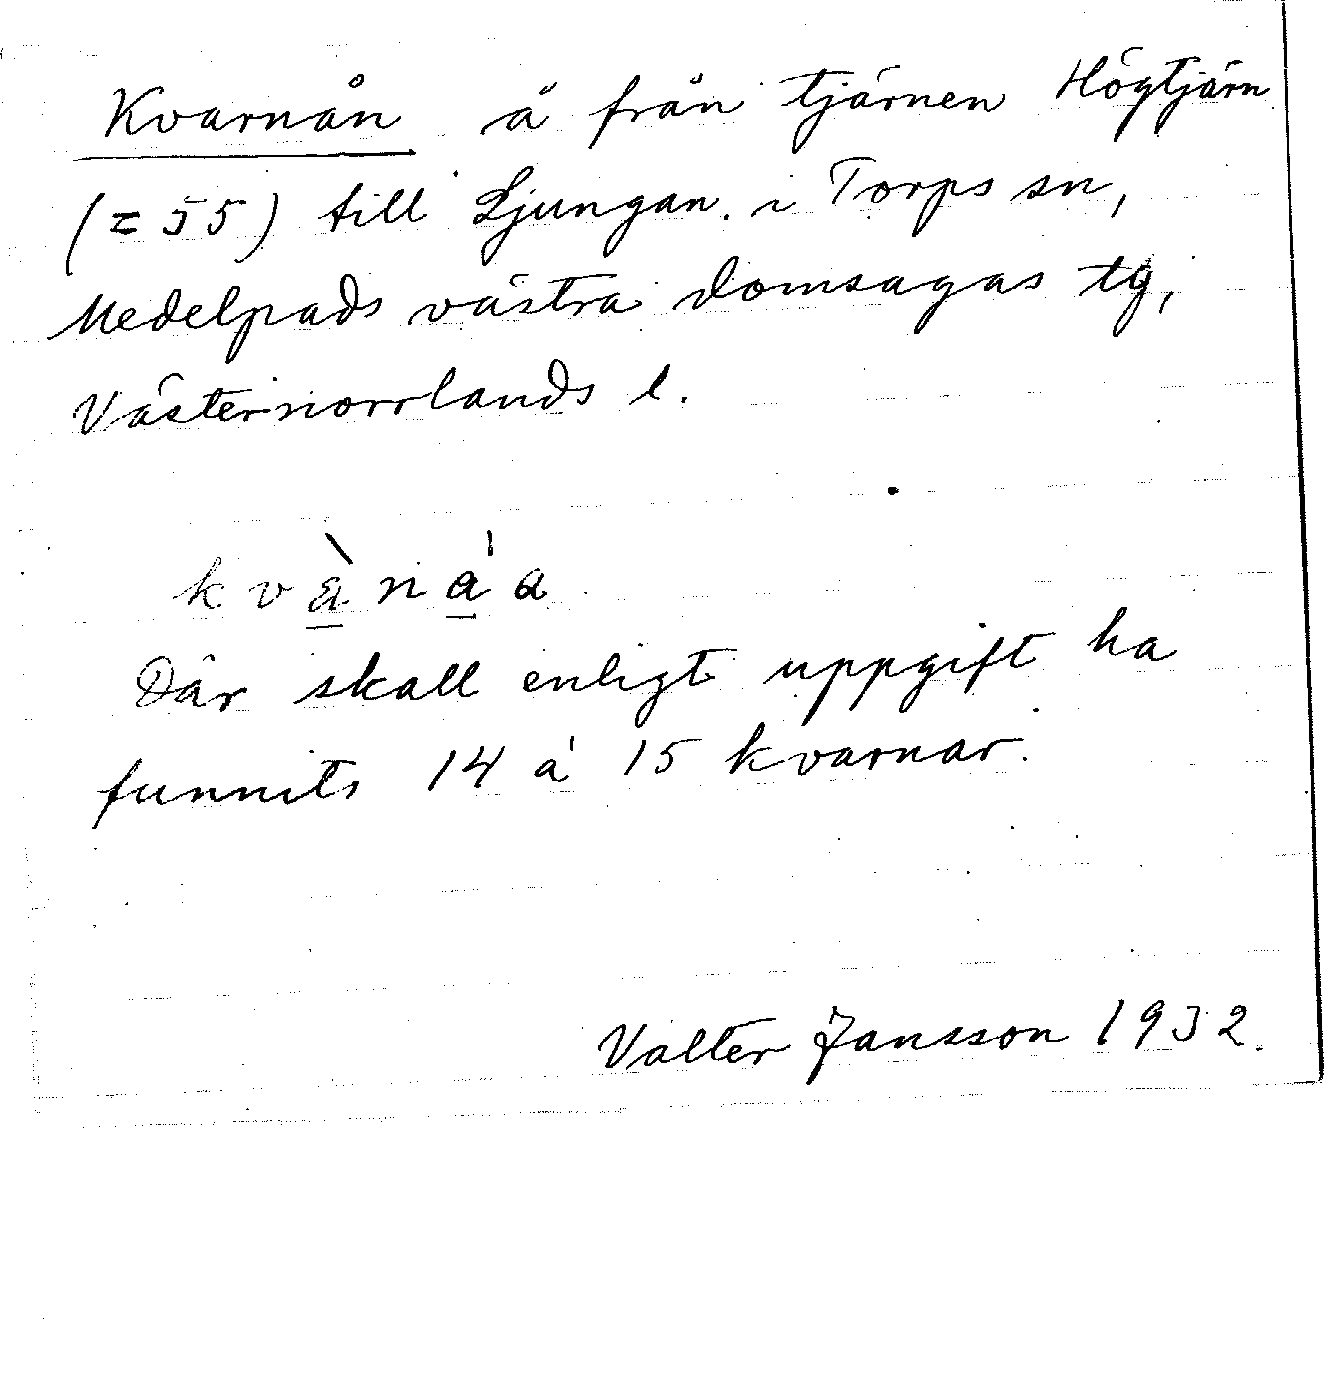 Kvarnån å från tjärnen Högtjärn
(= 55) till Ljungan i Torps sn,
Medelpads västra domsagas tg,
Västernorrlands l.
kvànáa
Där skall enligt uppgift ha
funnits 14 à 15 kvarnar.
Valter Jansson 1932.